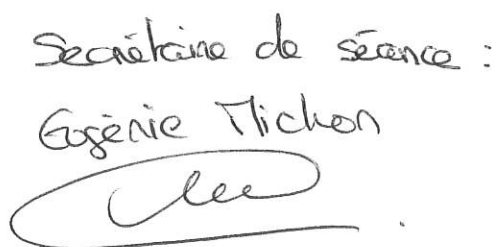 Secrétaire de séance :
Eugénie Michon